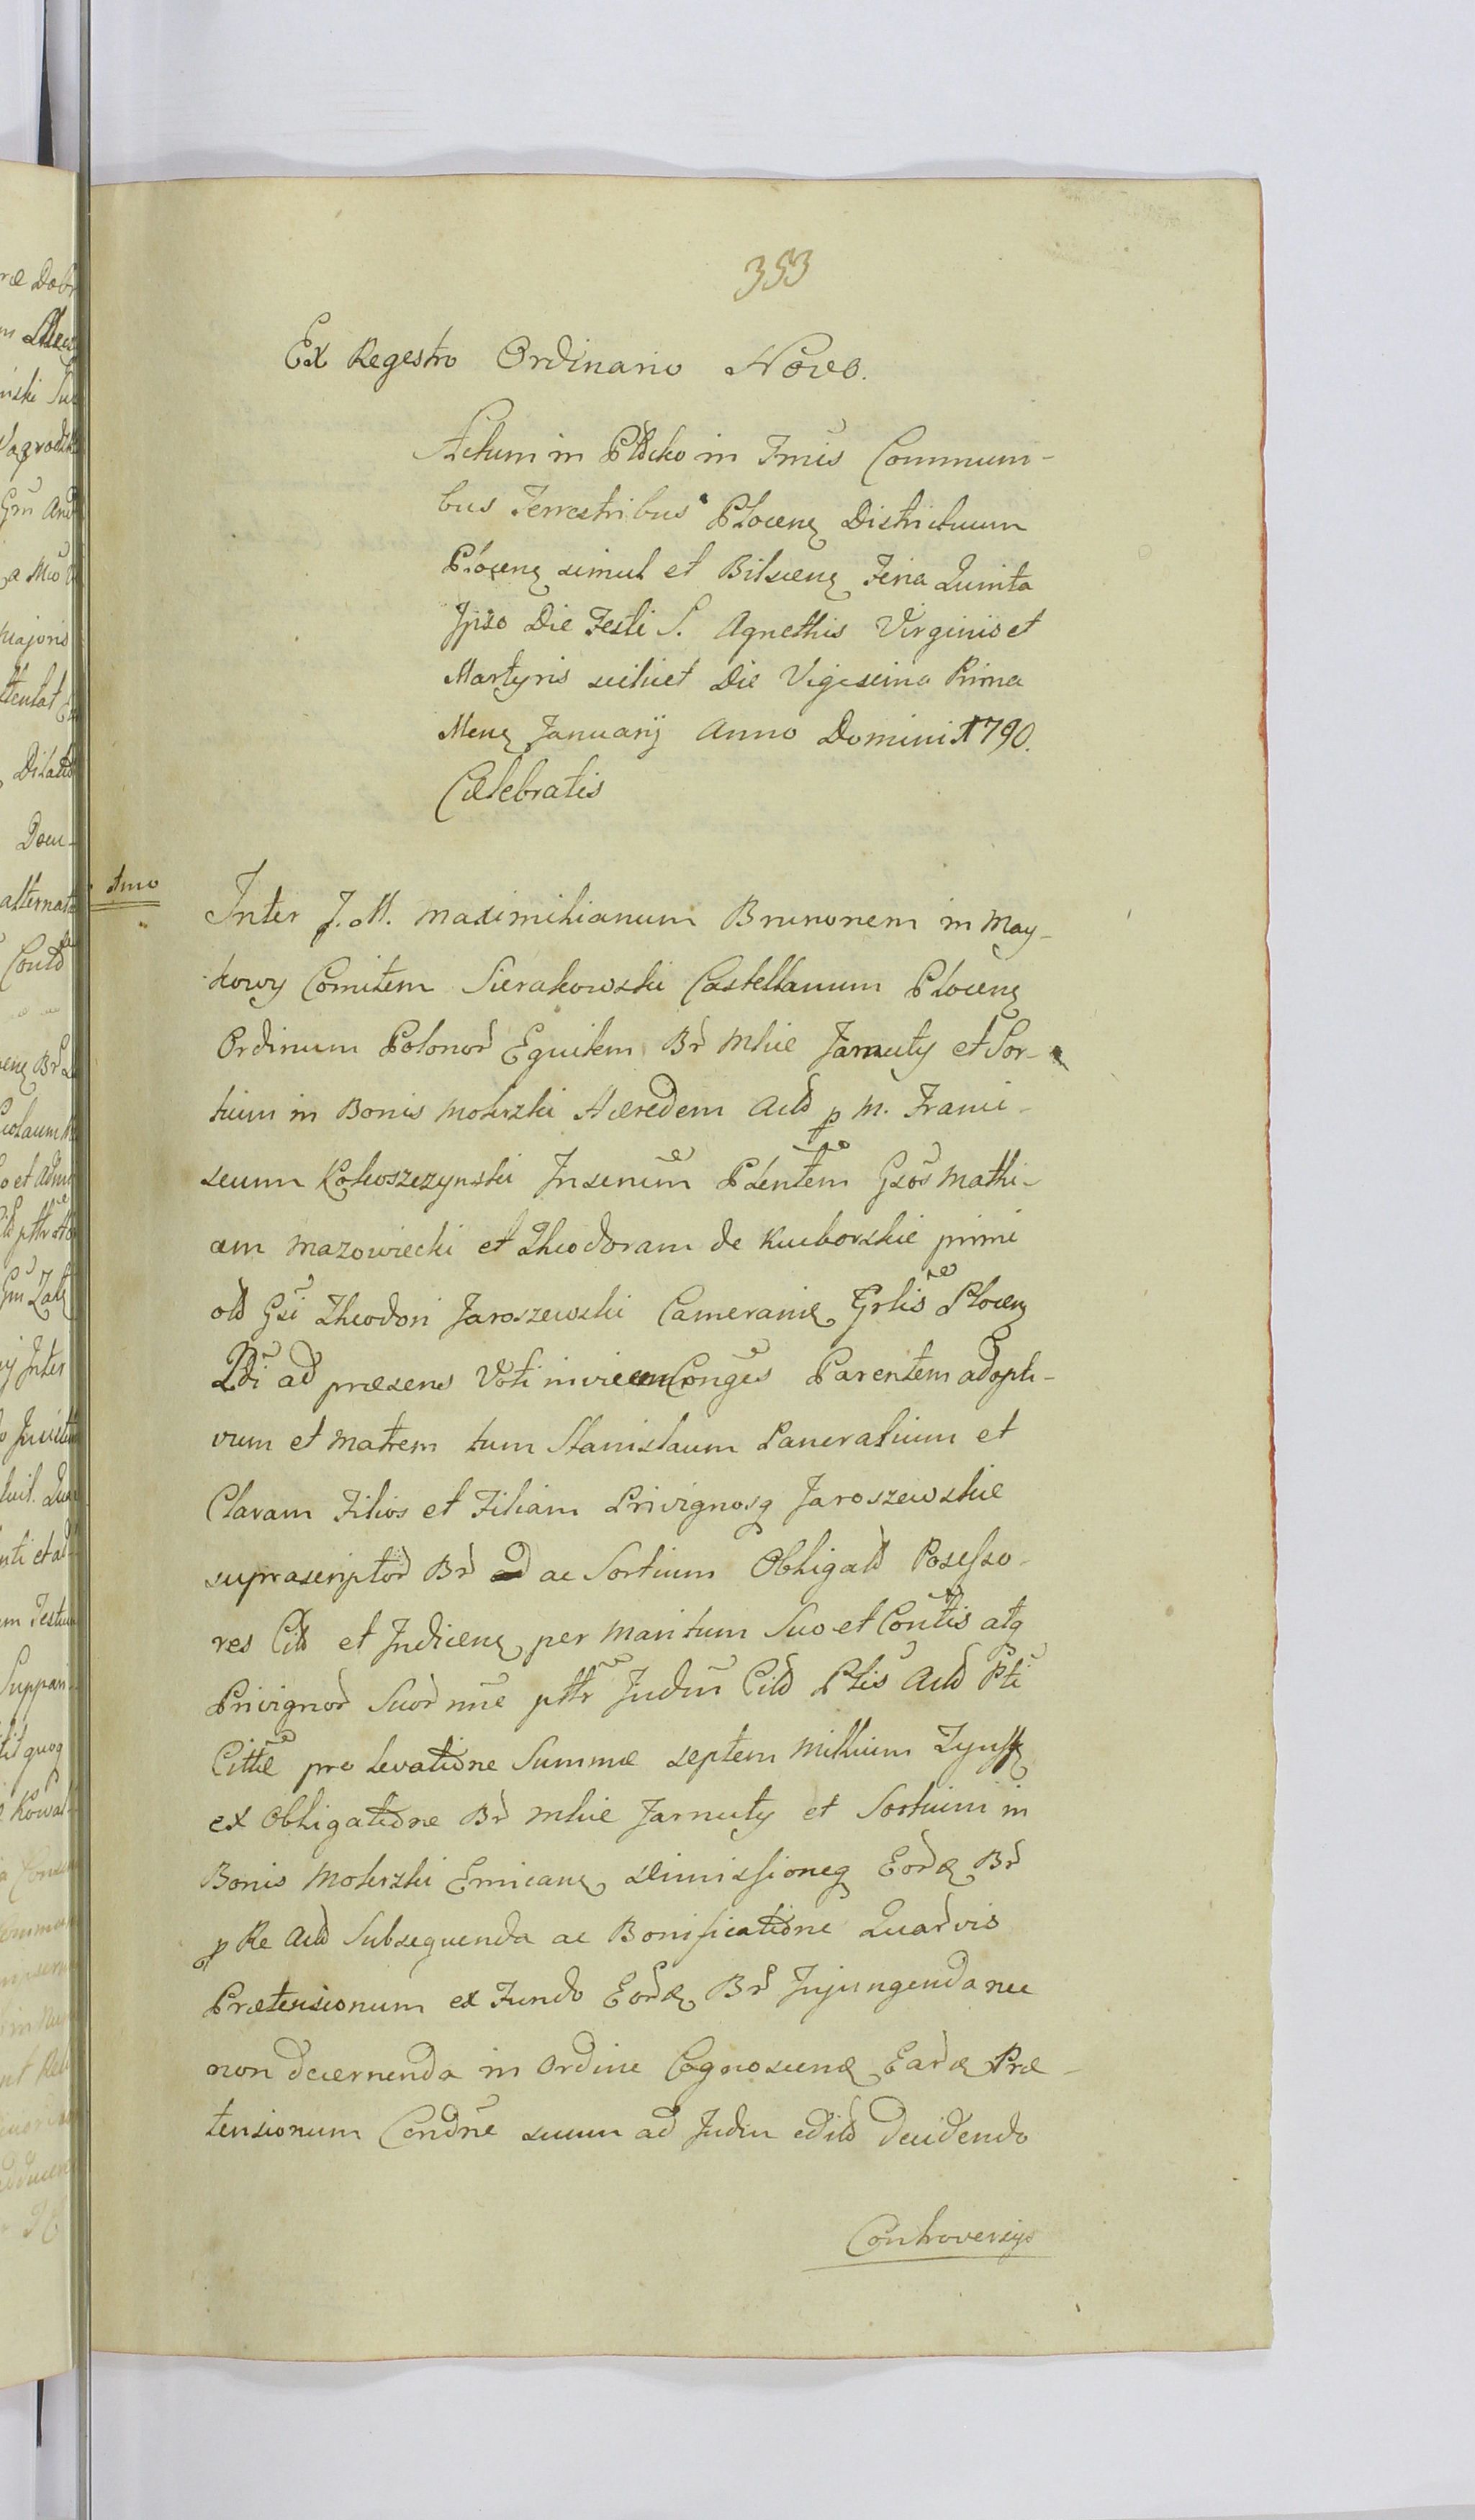 353
Ex Regestro Ordinario Novo.
Actum in Płocko in Tmis Communi-
bus Terrestribus Plocen Districtuum
Plocen simul et Bilscen Feria Quinta
Ipso Die Festi S. Agnethis Virginis et
Martyris scilicet Die Vigesima Prima
Mens Januarij Anno Domini 1790.
Cælebratis
1mo
Inter J. M. Maximilianum Brunonem in May-
kowy Comitem Sierakowski Castellanum Plocen
Ordinum Polonor Equitem Br Mlue Jarnuty et Sor-
tium in Bonis Mokrzki Hæredem Actd p M. Franci-
scum Kokoszczynski Insenum Plentem Gsos Mathi-
am Mazowiecki et Theodoram de Kuiborskie primi
old Gsi Theodori Jaroszewski Camerarie Grlis Plocen
2di ad præsens Voti invicem Conges Parentem adopti-
vum et Matrem tum Stanislaum Pancratium et
Claram Filios et Filiam Privignosq Jaroszewskie
suprascriptor Br ac Sortium Obligatd Possesso-
res Citd et Judicen per Maritum Suo et Contis atq
Privignor Suor nne ptr Judm Citd Ptis Actd Pti
Cittæ pro levatione Summæ septem Millium Tynff
ex Obligatione Br Mlue Jarnuty et Sortium in
Bonis Mokrzki Emican dimissioneq Eord Br
p Re Actd Subsequenda ac Bonificatione Quarvis
Prætensionum ex Fundo Eord Br Injungenda nec
non decernenda in Ordine Cognoscend Eard Præ-
tensionum Condne suum ad Judm editd decidendo
Controversijs